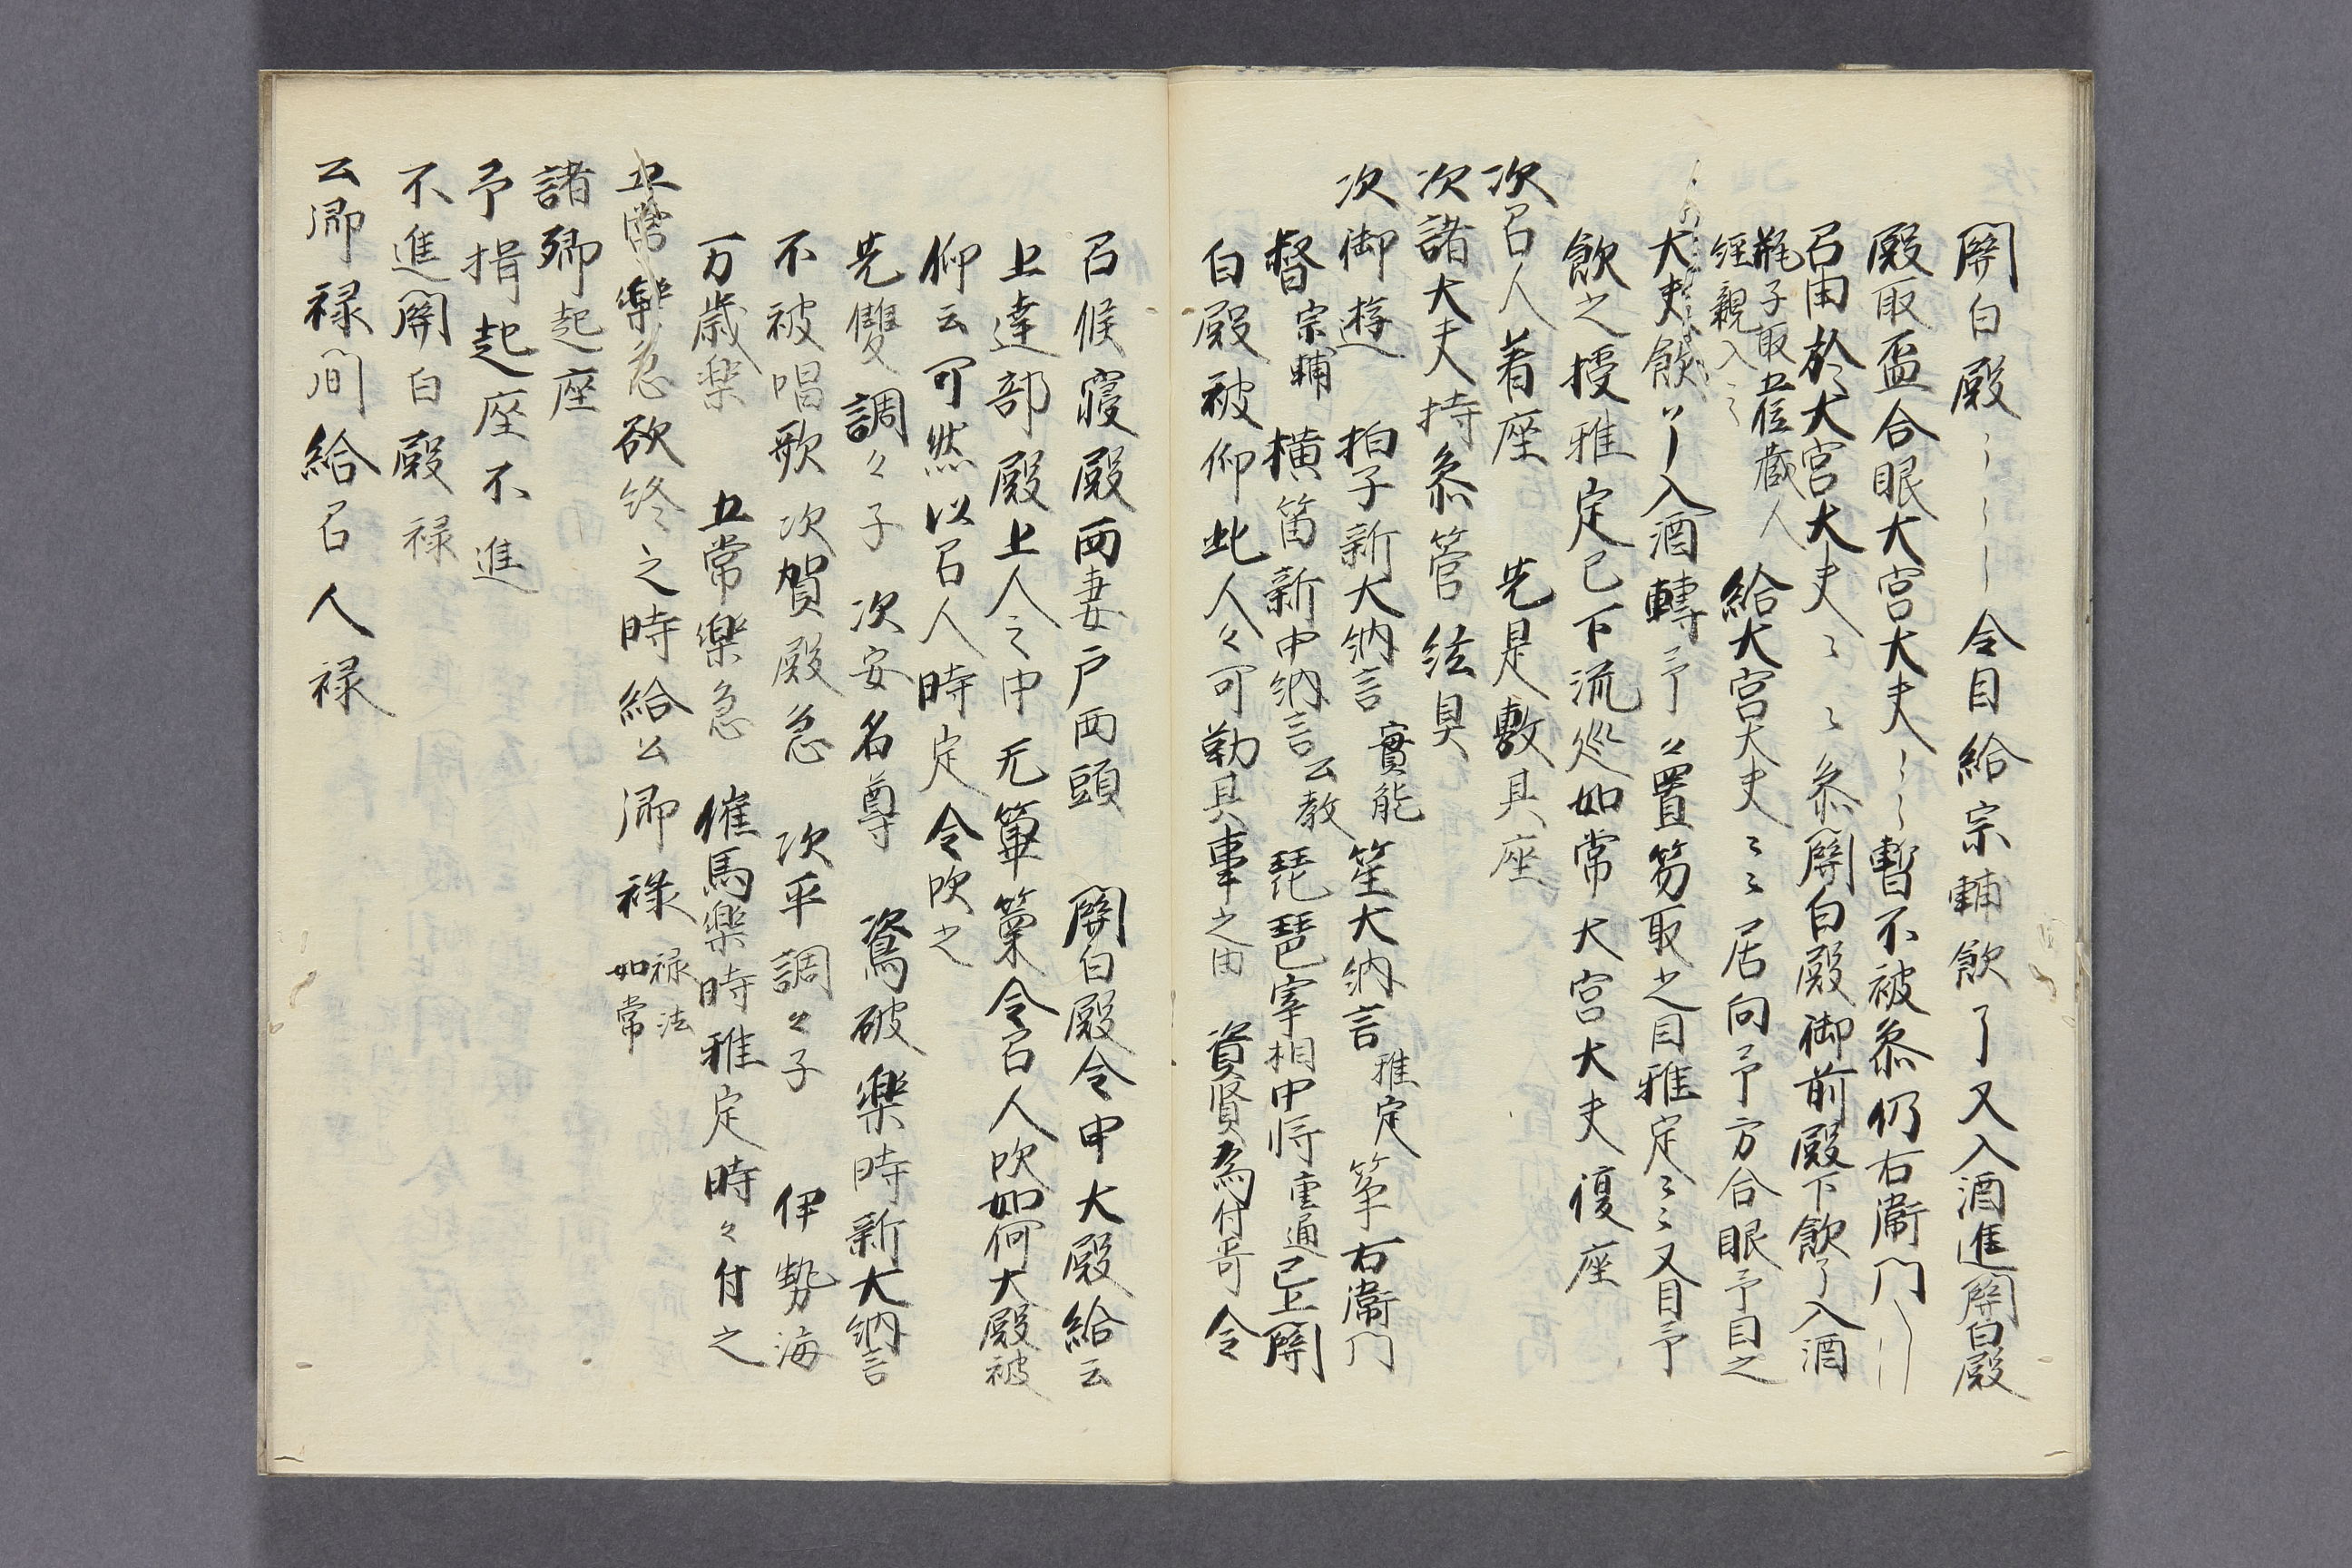 関白殿〻〻〻令目給宗輔飲了又入酒進関白殿
殿取盃合眼大宮大夫〻〻〻暫不被参仍右衛門
召由於大宮大夫〻〻参関白殿御前殿下飲了入酒
瓶子取五位蔵人
経親入〻
給大宮大夫〻〻居向予方合眼予目之
大夫飲了入酒轉予々置笏取之目雅定〻〻又目予
飲之授雅定已下流巡如常大宮大夫復座
次召人着座 先是敷其座
次諸大夫持参管絃具
次御遊 拍子新大納言實能笙大納言雅定箏右衛門
督宗輔横笛新中納言公教琵琶宰相中将重通已上関
白殿被仰此人々可勤其事之由 資賢為付哥令
召候寝殿西妻戸西頭 関白殿令申大殿給云
上達部殿上人之中无篳篥令召人吹如何大殿被
仰云可然以召人時定令吹之
先雙調々子 次安名尊 鳥破樂時新大納言
不被唱歌次賀殿急 次平調々子 伊勢海
万歳楽 五常樂急 催馬樂時雅定時々付之
五常樂急欲終之時給公卿禄禄法
如常
諸卿起座
予揖起座不進
不進関白殿禄
公卿禄間給召人禄